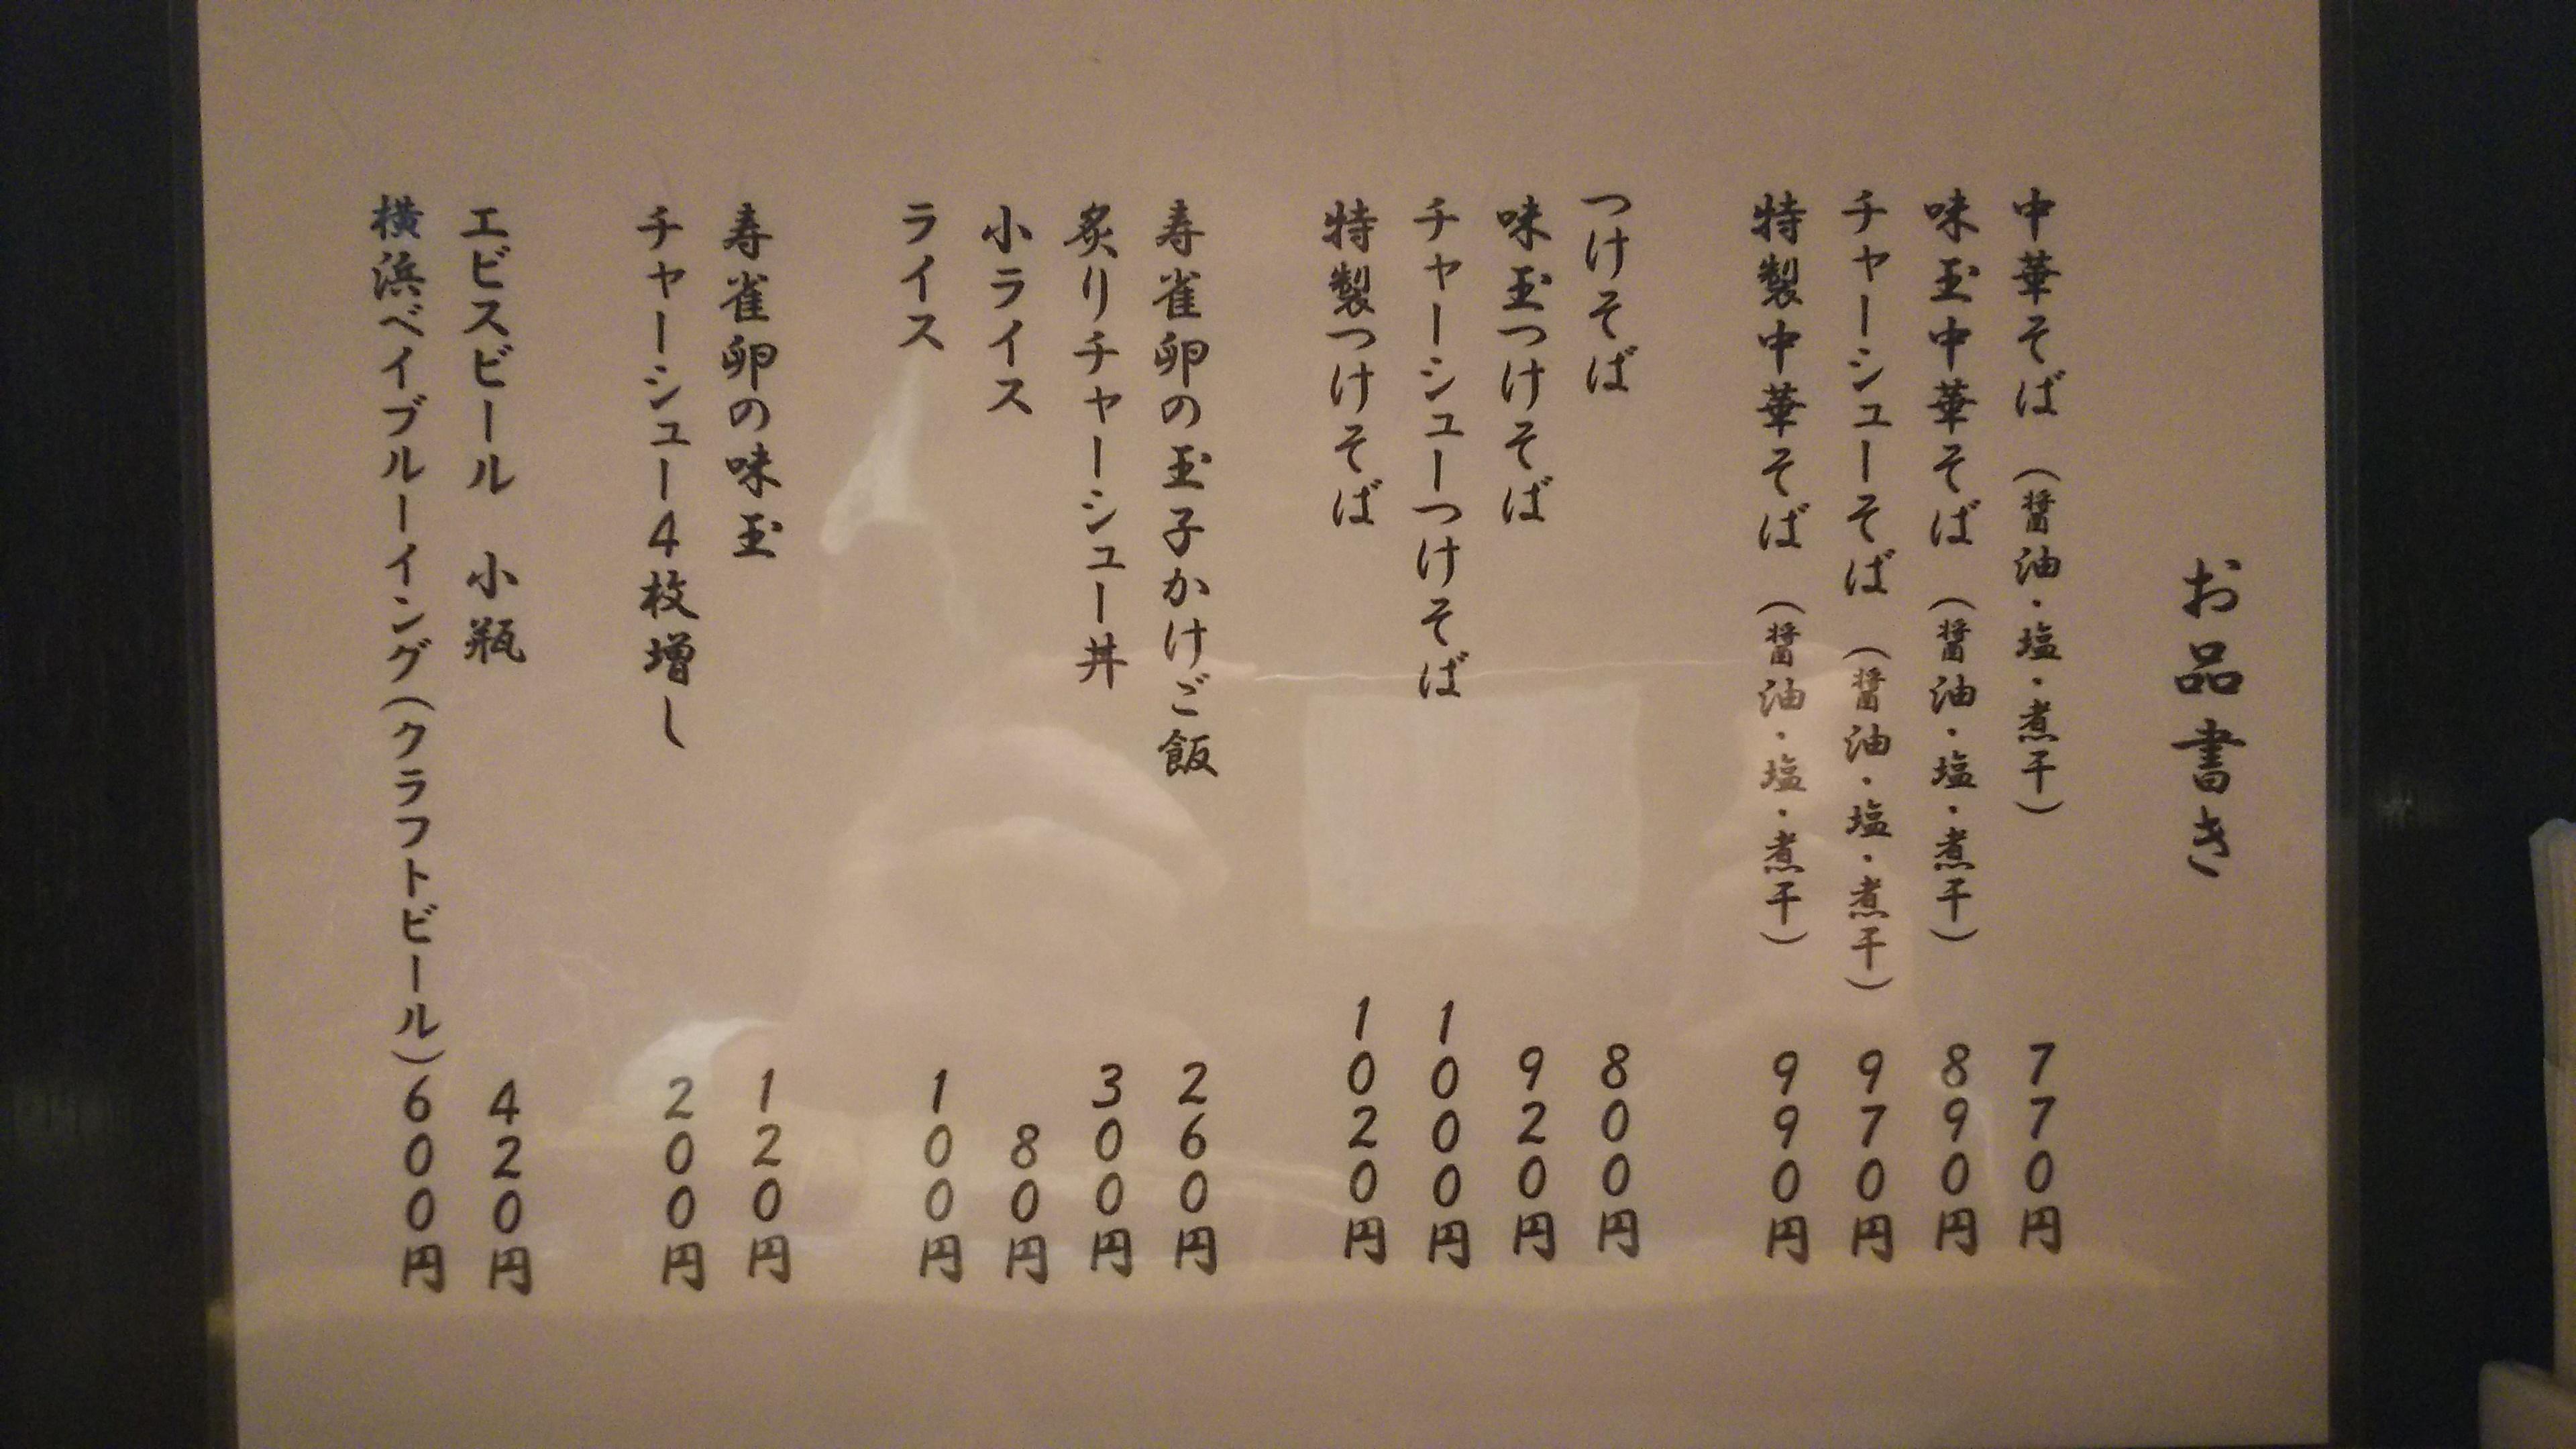 お品書き
中華そば（醤油・塩・煮干）　770円
味玉中華そば（醤油・塩・煮干）　890円
チャーシューそば（醤油・塩・煮干）　970円
特製中華そば（醤油・塩・煮干）　990円
つけそば　800円
味玉つけそば　920円
チャーシューつけそば　1000円
特製つけそば　1020円
寿雀卵の玉子かけご飯　260円
炙りチャーシュー丼　300円
小ライス　80円
ライス　100円
寿雀卵の味玉　120円
チャーシュー4枚増し　200円
エビスビール　小瓶　420円
横浜ベイブルーイング（クラフトビール）600円